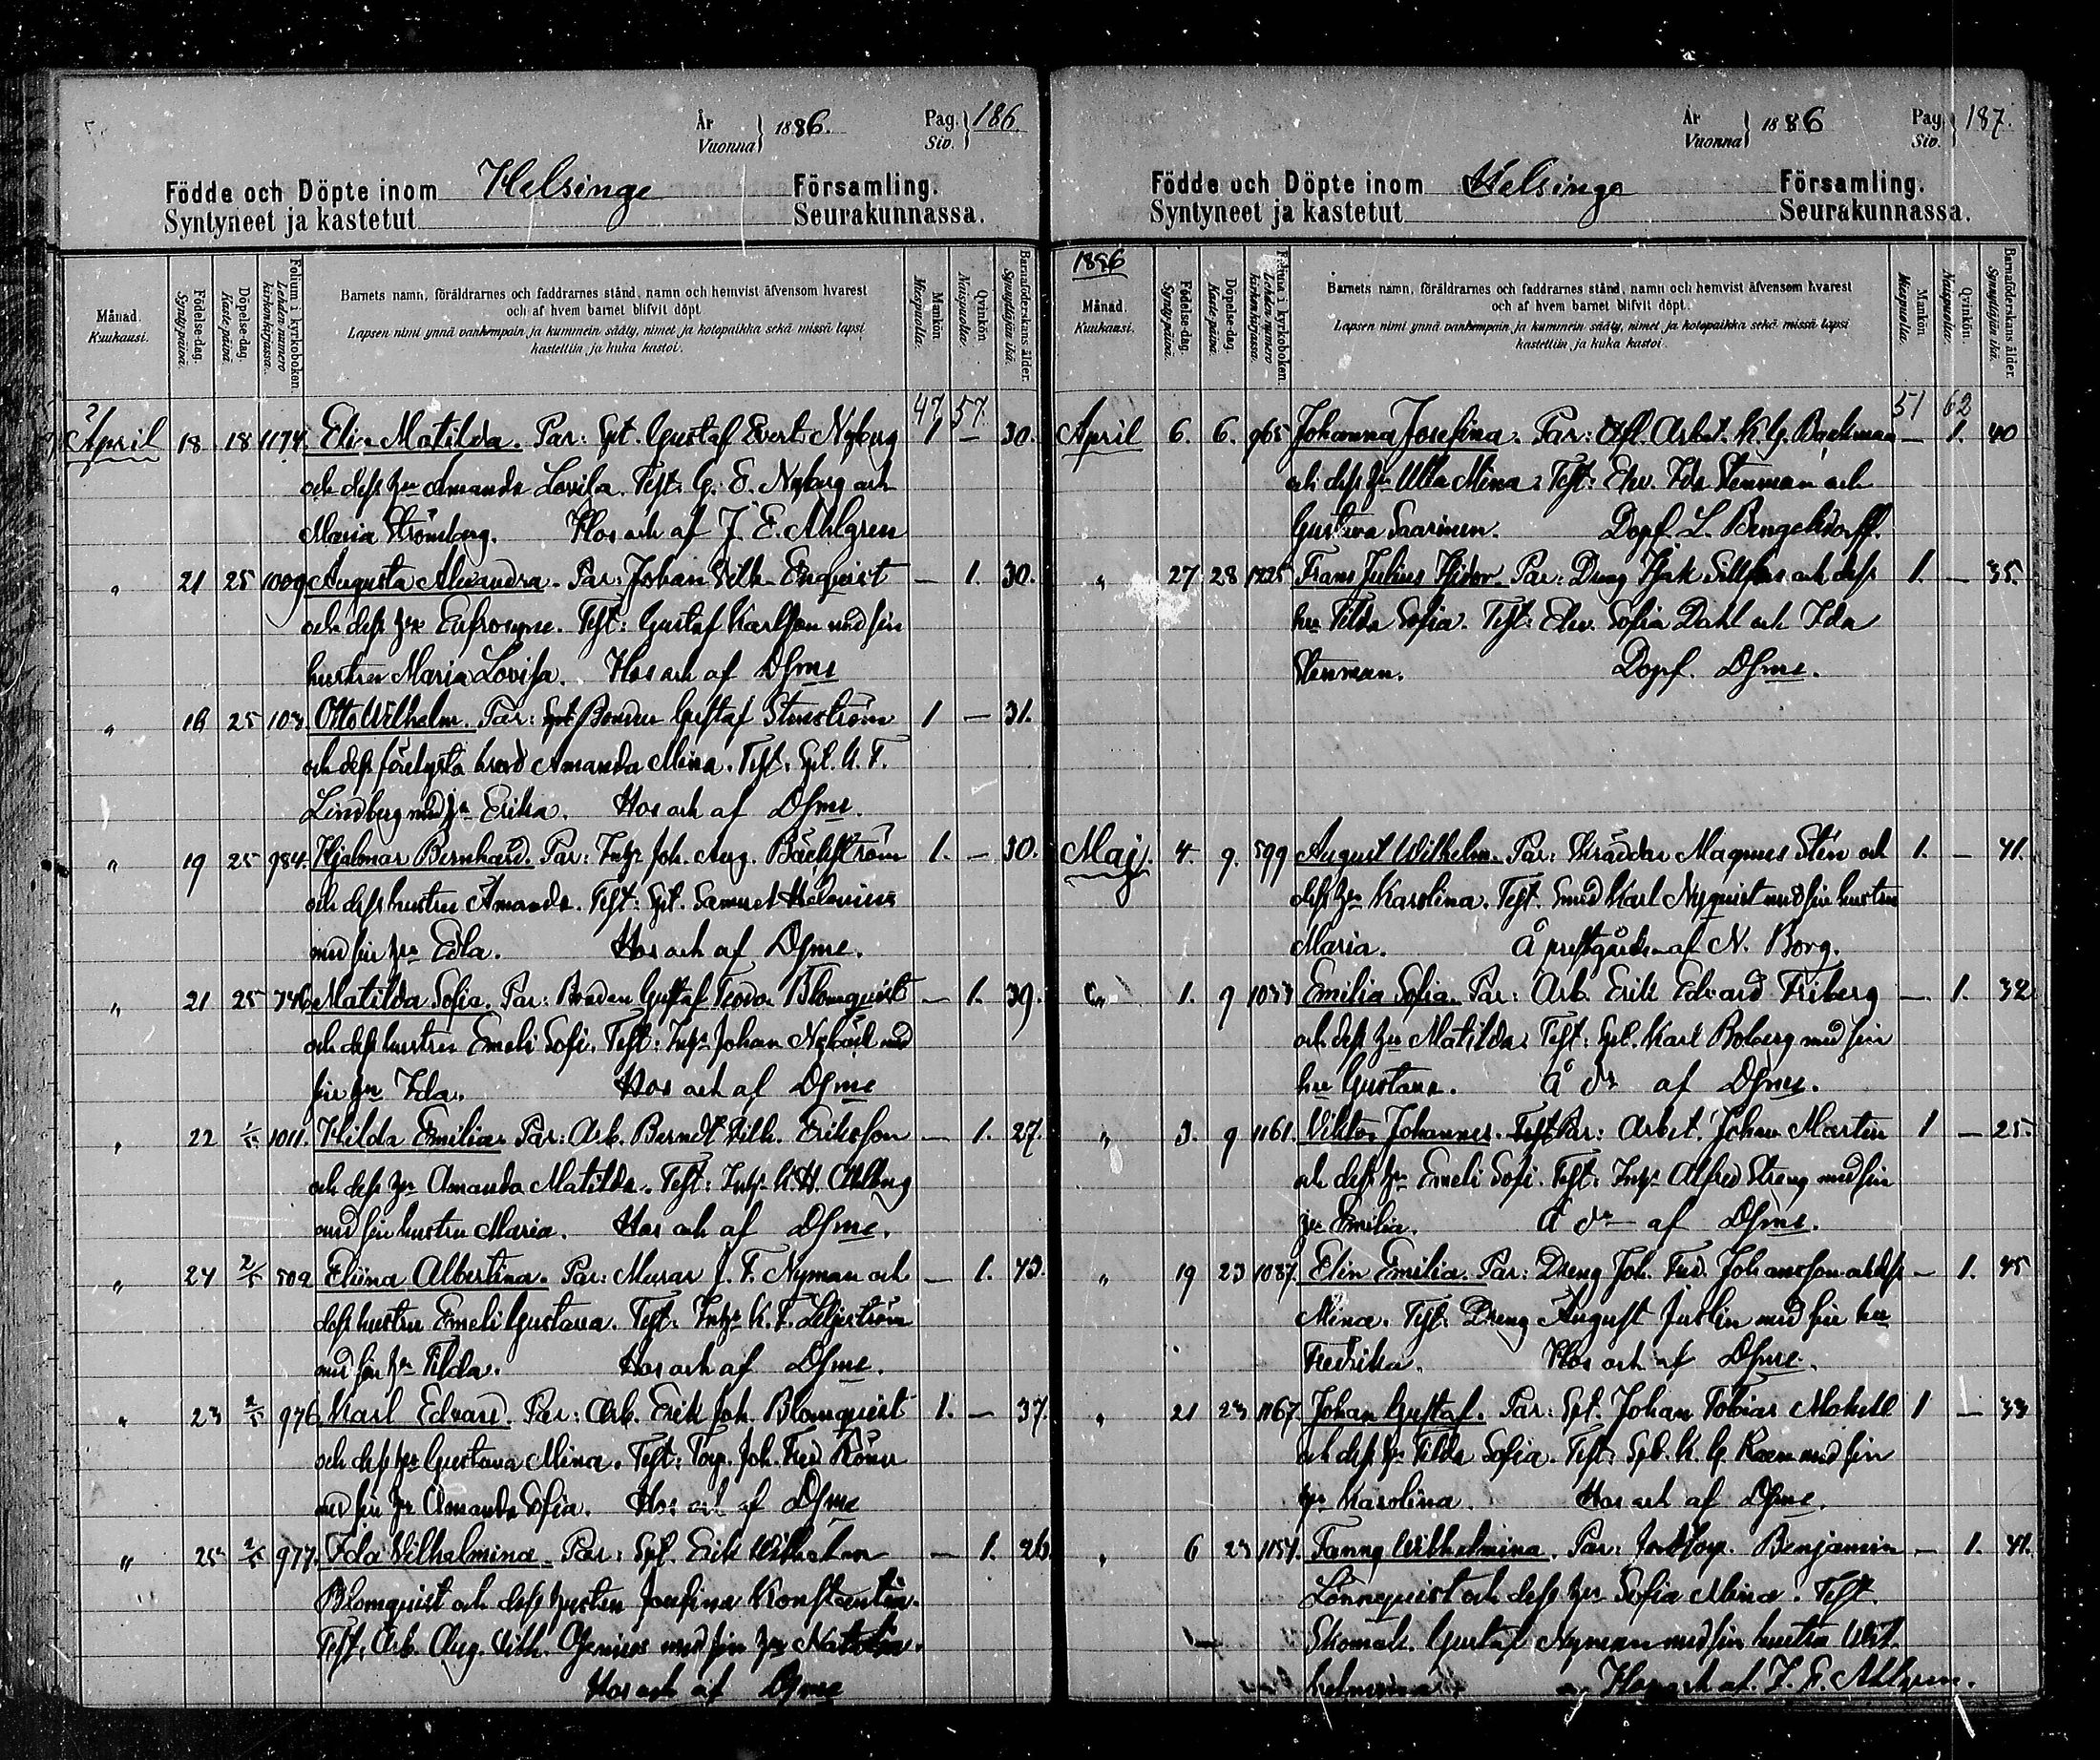 År Vuonna } 1886. Pag. Siv. } 186.
Födde och Döpte inom Helsinge Församling.
Syntyneet ja kastetut Seurakunnassa.
Månad. Kuukausi. Födelse-dag. Synty-päivä. Döpelse-dag. Kaste-päivä. Folium i kyrkoboken. Lehden numero kirkonkirjassa. Barnets namn, föräldrarnes och faddrarnes stånd, namn och hemvist äfvensom hvarest Mankön Miespuolia. Qvinkön. Naispuolia. Barnaföderskans ålder. Synnyttäjän ikä.
och af hvem barnet blifvit döpt.
Lapsen nimi ynnä vanhempain ja kummein sääty, nimet ja kotopaikka sekä missä lapsi
kastettiin ja kuka kastoi.
47 57.
April 18 18 1174. Matilda. Par: Spt. Gustaf Evert Nyberg 1 — 30.
och dess hu Amanda Lovisa. Test: G. E. Nyberg och
Maria Strömberg. Hos och af J. E. Ahlgren
" 21 25 1009 Augusta Alexandra. Par: Johan Vilh. Enqvist — 1. 30.
och dess hu Eufrosyne. Test: Gustaf Karlsson med sin
hustru Maria Lovisa. Hos och af Dsme
" 16 25 103. Otto Wilhelm. Par: Bonden Gustaf Stenström 1 — 31.
och dess förelysta brud Amanda Mina. Test. Spt. K. F.
Lindberg med hu Erika. Hos och af Dsme.
" 19 25 984. Hjalmar Bernhard. Par: Inhs Joh. Aug. Bäckström 1. — 30.
och dess hustru Amanda. Test: Spt. Samuel Helenius
med sin hu Edla. Hos och af Dsme.
" 21 25 746 Matilda Sofia. Par: Bonden Gustaf Teodor Blomqvist — 1. 39.
och dess hustru Emeli Sofi. Test: Inhs Johan Nybäck med
sin hu Ida. Hos och af Dsme
" 22 2/5 1011. Hilda Emilia. Par: Arb. Berndt Vilh. Eriksson — 1. 27.
och dess hu Amanda Matilda. Test: Inhs K. H. Ahlberg
med sin hustru Maria. Hos och af Dsme.
" 24 2/5 502 Eliina Albertina. Par: Murar J. F. Nyman och — 1. 43.
dess hustru Emeli Gustava. Test: Inhs K. F. Liljeström
med sin hu Tilda. Hos och af Dsme.
" 23 2/5 976 Karl Edvard. Par: Arb. Erik Joh. Blomqvist 1. — 37.
och dess hu Gustava Mina. Test: Torp. Joh. Fred
med sin hu Amanda Sofia. Hos och af Dsme
" 25 2/5 977. Ida Vilhelmina. Par: Spt. Erik Wilhelm — 1. 26.
Blomquist och dess hustru Josefina Konstantia.
Test. Arb. Aug. Vilh. med sin hu
Hos och af Dsme
År Vuonna } 1886 Pag. Siv. } 187.
Födde och Döpte inom Helsinge Församling.
Syntyneet ja kastetut Seurakunnassa.
1886
Månad. Kuukausi. Födelse-dag. Synty-päivä. Döpelse-dag. Kaste-päivä. Folium i kyrkoboken. Lehden numero kirkonkirjassa. Barnets namn, föräldrarnes och faddrarnes stånd, namn och hemvist äfvensom hvarest Mankön Miespuolia. Qvinkön. Naispuolia. Barnaföderskans ålder. Synnyttäjän ikä.
och af hvem barnet blifvit döpt.
Lapsen nimi ynnä vanhempain ja kummein sääty, nimet ja kotopaikka sekä missä lapsi
kastettiin ja kuka kastoi.
51 62
April 6. 6. 965 Johanna Josefina. Par: Arbet. K. G. Backman — 1. 40
och dess hu Ulla Mina. Test: Elev. Ida Stenman och
Gustava Saarinen. Döpf. L. Bengelsdorff.
" 27 28 1225 Frans Julius Hjidor. Par: Dreng Isak Sillfors och dess 1. — 35.
hu Tilda Sofia. Test: Elev. Sofia Dahl och Ida
Stenman. Döpf. Dsme.
Maj. 4. 9. 599 August Wilhelm. Par: Skräddar Magnus Sten och 1. — 41.
dess hu Karolina. Test. Smed Karl Nyqvist med sin hustru
Maria. Å prestgården af N. Borg.
" 1. 9 1033 Emilia Sofia. Par: Arb. Erik Edvard Friberg — 1. 32
och dess hu Matilda. Test: Spt. Karl Boberg med sin
hu Gustava. Å do af Dsme.
" 3. 9 1161. Viktor Johannes. Par: Arbet. Johan Martin 1 — 25.
och dess hu Emeli Sofi. Test: Inhs Alfred Streng med sin
hu Emilia. Å do af Dsme.
" 19 23 1087. Elin Emilia. Par: Dreng Joh. Fred. Johansson och dess — 1. 45
Mina. Test: Dreng August Juslin med sin hu
Fredrika. Hos och af Dsme.
" 21 23 1167. Johan Gustaf. Par: Spt. Johan Tobias Mokell 1 — 33
och dess hu Tilda Sofia. Test: Spt. K. G. Roen med sin
hu Karolina. Hos och af Dsme.
" 6 23 1154. Fanny Wilhelmina. Par: Benjamin — 1. 41.
Lönnquist och dess hu Sofia Mina. Test.
Skomak. Gustaf Nyman med sin hustru Wil-
helmina. Hos och af J. E. Ahlgren.